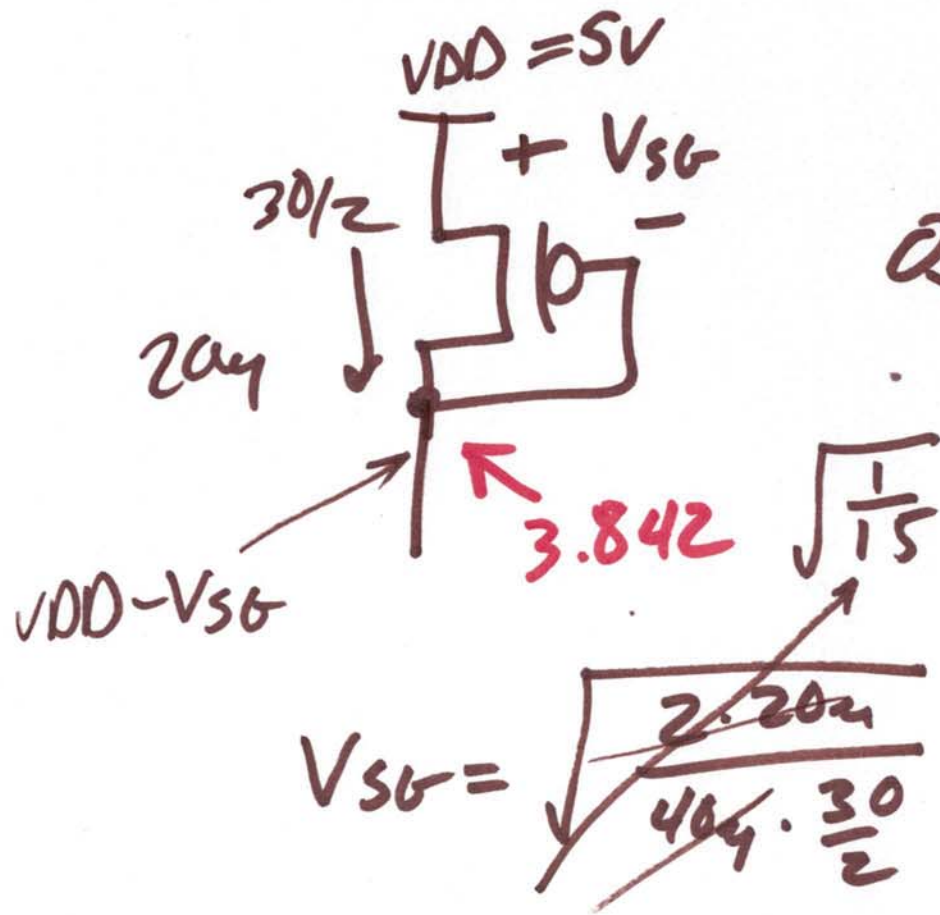 VDD = 5V
+ VSG -
30/2
20μ
3.842
VDD-VSG
√1/15
VSG = √2·20μ / 40μ · 30/2